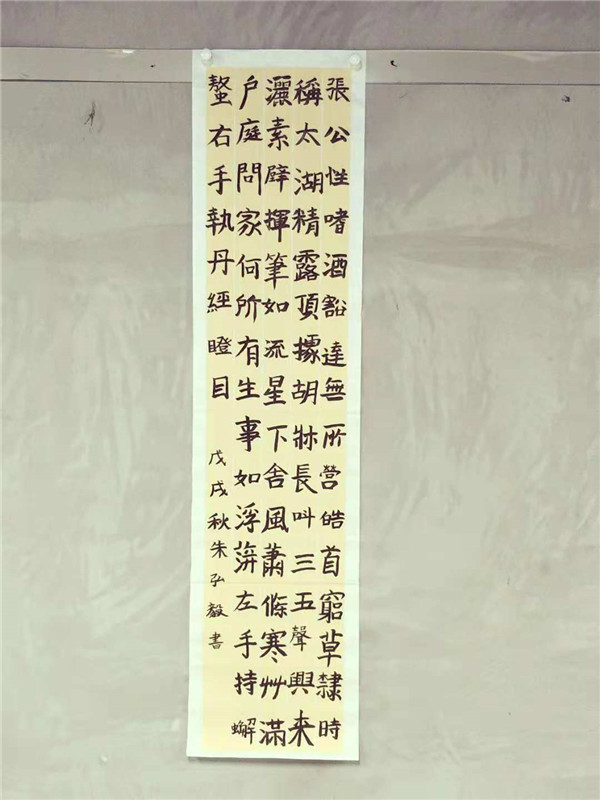 張公性嗜酒豁達無所營皓首窮草隸時
稱太湖精露頂據胡牀長叫三五聲興來
灑素壁揮筆如流星下舍風蕭條寒艸滿
户庭問家何所有生事如浮蓱左手持蠏
螯右手執丹經瞪目
戊戌秋朱弘毅書